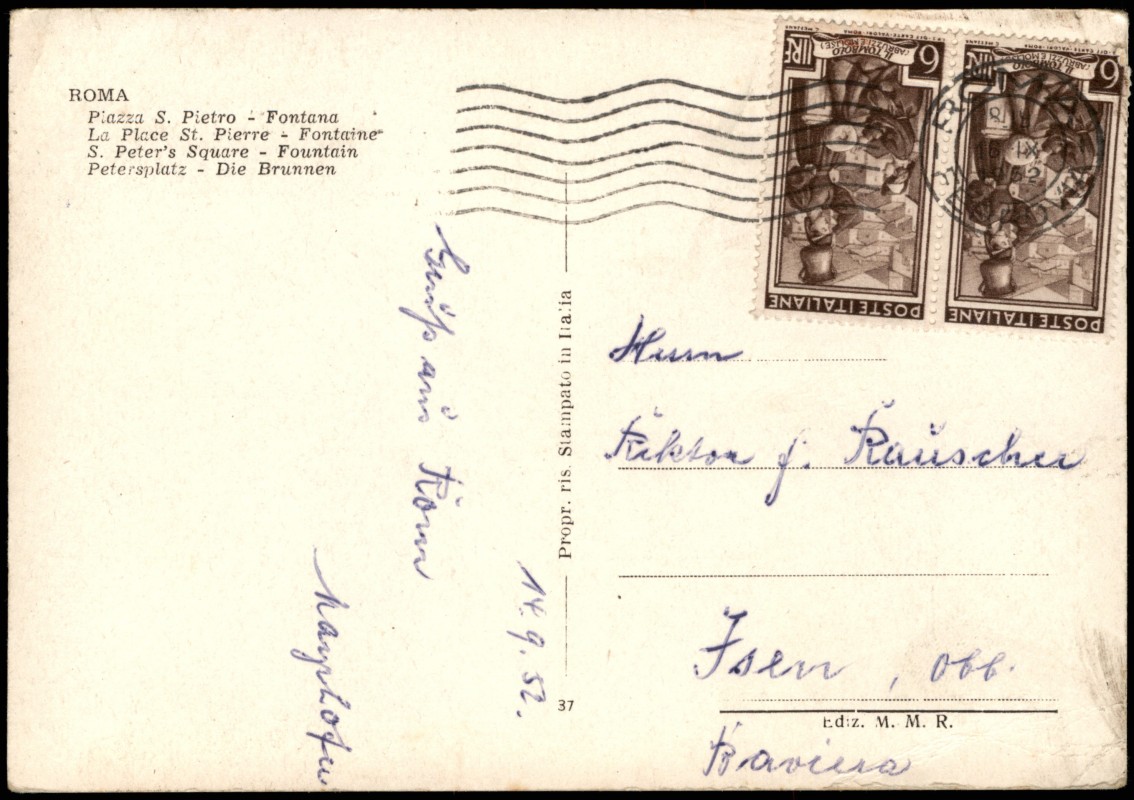 ROMA
Piazza S. Pietro - Fontana
La Place St. Pierre - Fontaine
S. Peter's Square - Fountain
Petersplatz - Die Brunnen
14.9.52.
Gruß aus Rom
Propr. ris. Stampato in Italia
37
6 LIRE
IL TOMBOLO
(ABRUZZI E MOLISE)
POSTE ITALIANE
6 LIRE
IL TOMBOLO
(ABRUZZI E MOLISE)
POSTE ITALIANE
Herrn
Rektor J. Rauscher
Isen, Obb.
Ediz. M. M. R.
Baviera